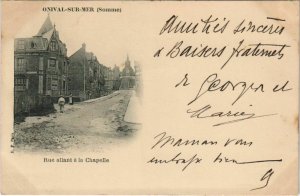 ONIVAL-SUR-MER (Somme)
Amitiés sincères
et Baisers fraternels
de Georges et
Marie
Maman vous
embrasse bien
Rue allant à la Chapelle